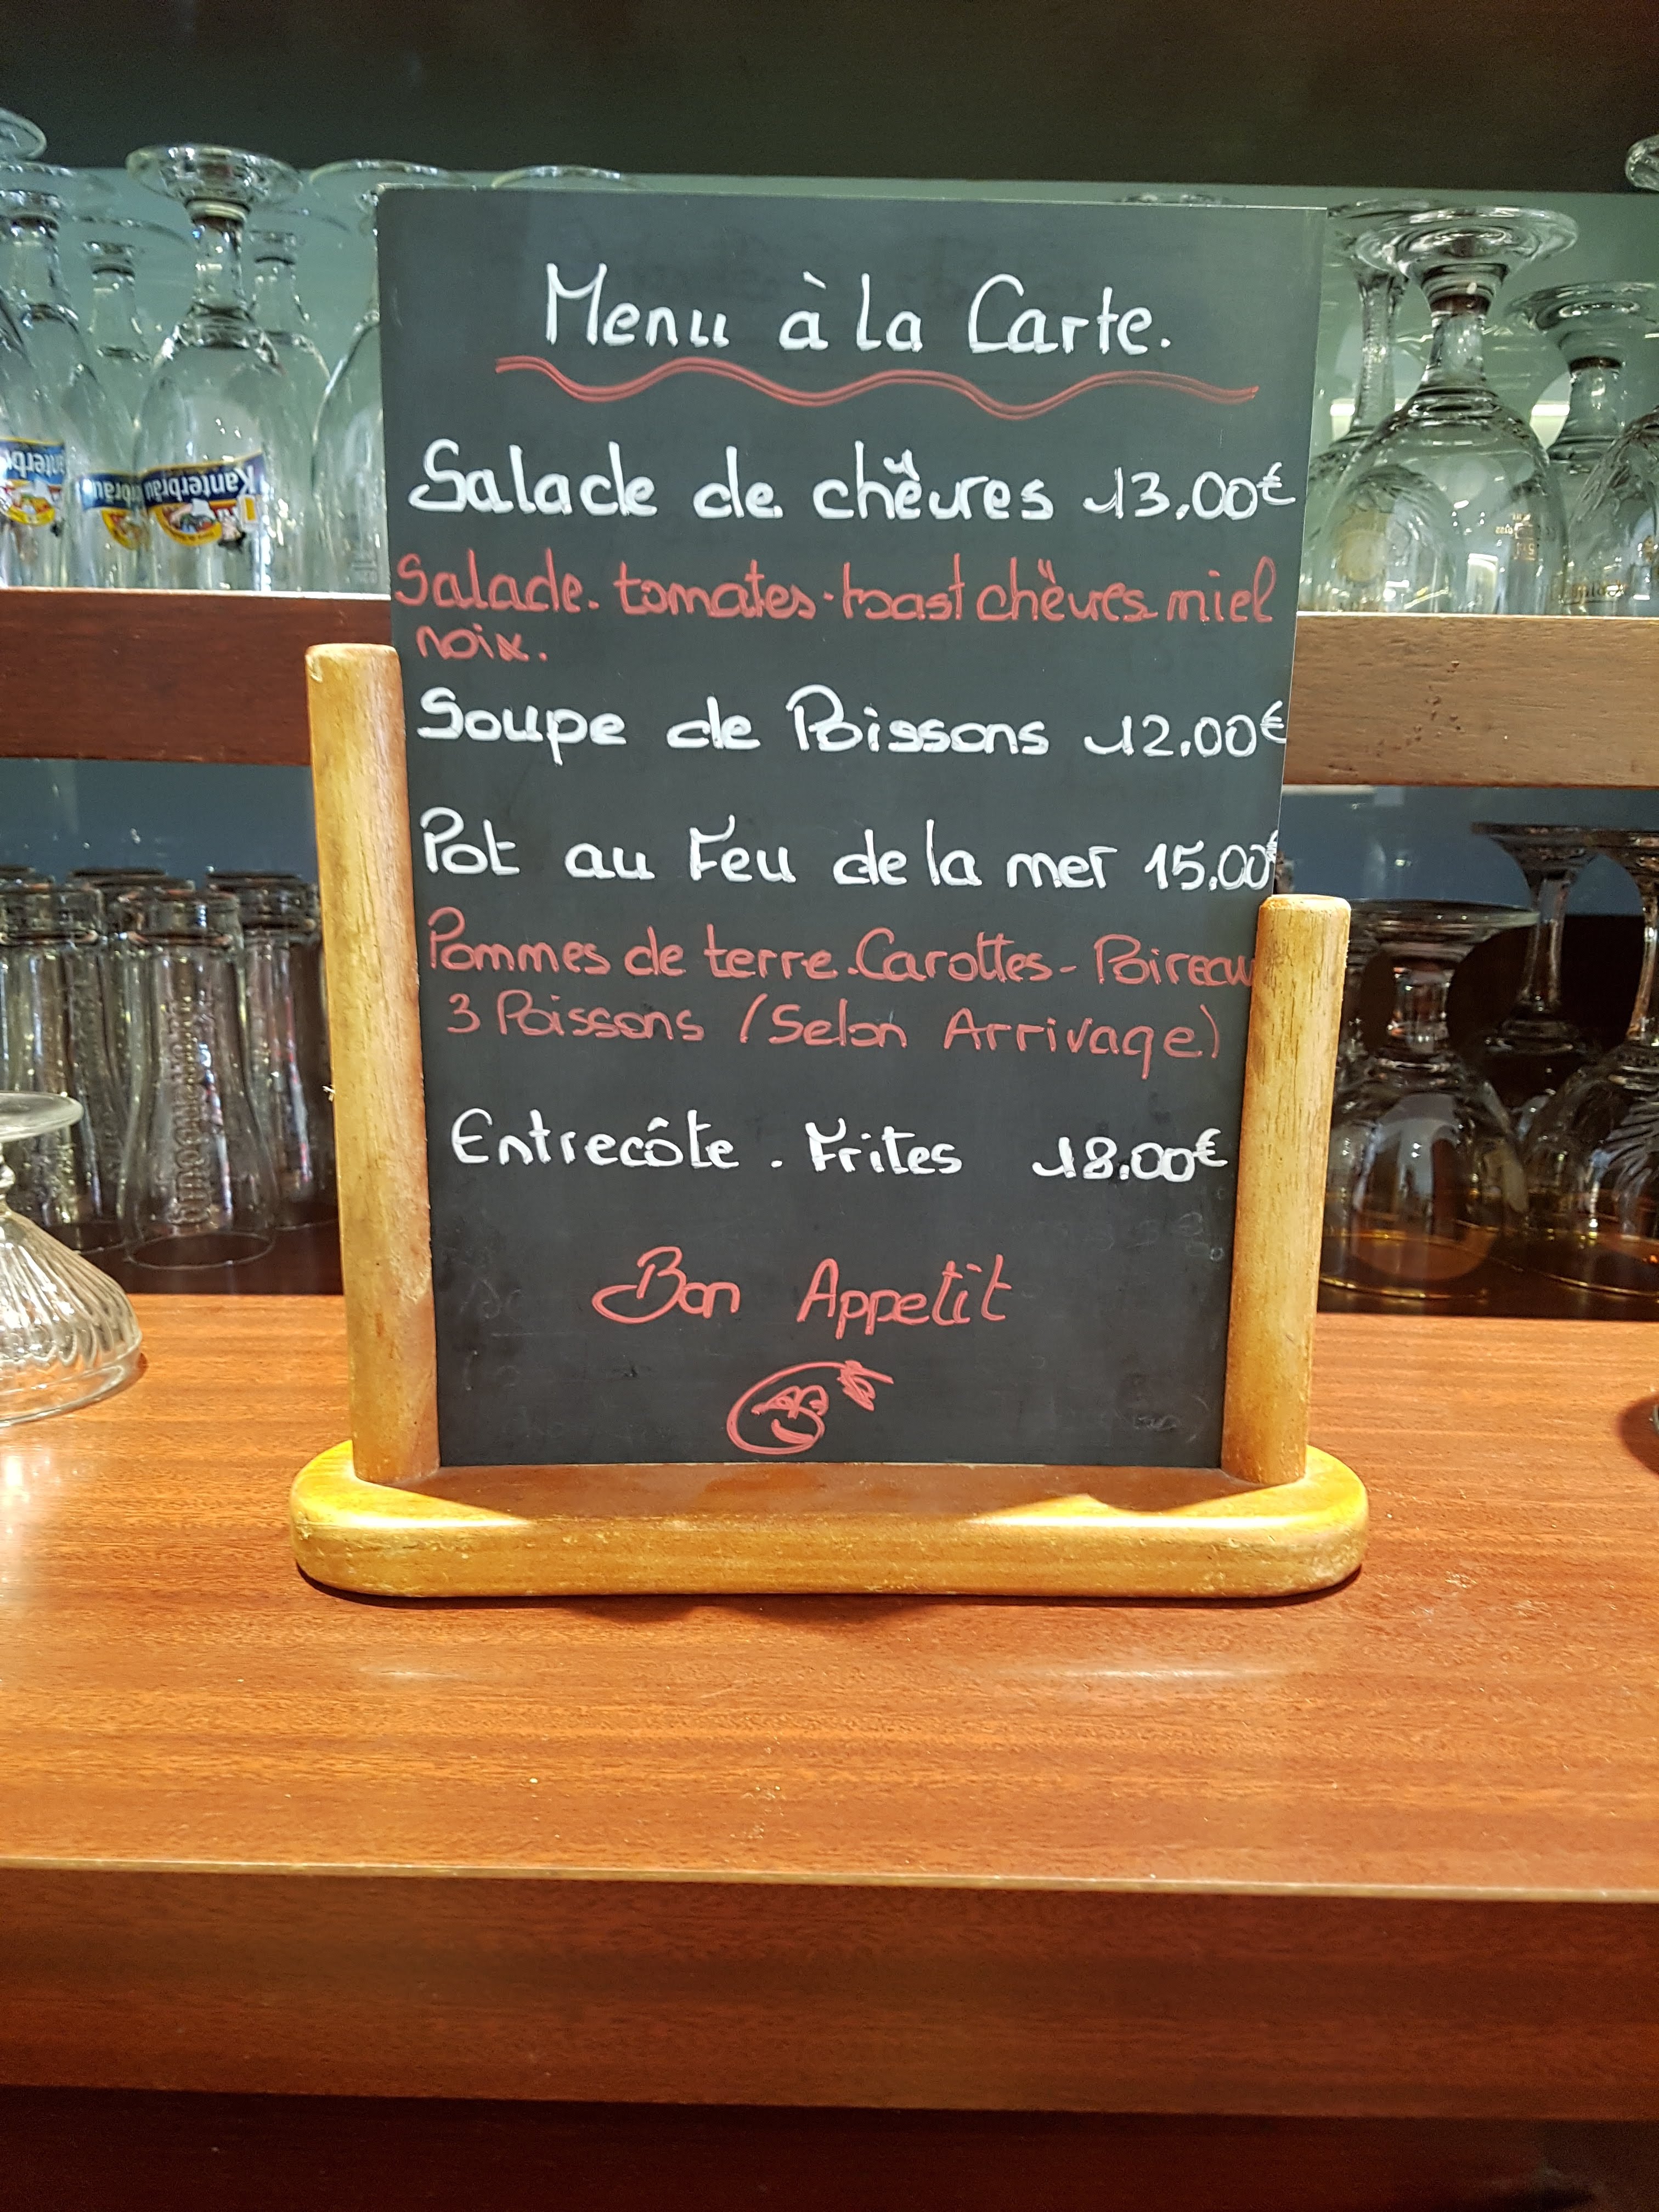 Menu à la Carte.
Salade de chèvres 13.00€
Salade. tomates. toast chèvres miel
noix.
Soupe de Poissons 12.00€
Pot au Feu de la mer 15.00€
Pommes de terre. Carottes - Poireau
3 Poissons (Selon Arrivage)
Entrecôte . Frites 18.00€
Bon Appetit
Kanterbräu